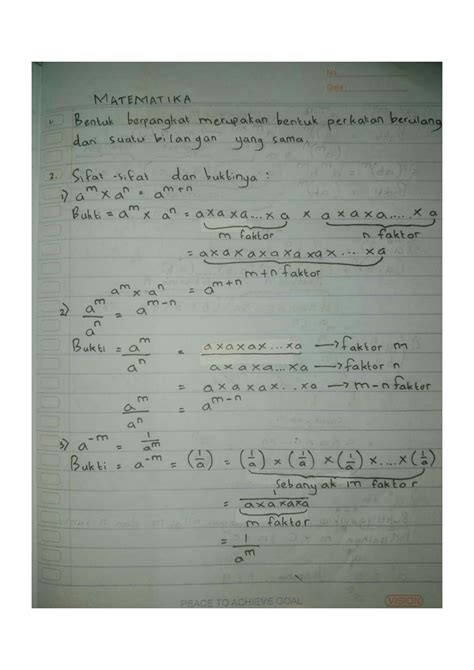 No.
Date
MATEMATIKA
1. Bentuk berpangkat merupakan bentuk perkalian berulang
dari suatu bilangan yang sama.
2. Sifat-sifat dan buktinya :
1) a^m x a^n = a^(m+n)
Bukti = a^m x a^n = a x a x a ... x a x a x a x a ..... x a
m faktor n faktor
= a x a x a x a x a x a x ... x a
m+n faktor
a^m x a^n = a^(m+n)
2) a^m / a^n = a^(m-n)
Bukti = a^m / a^n = a x a x a x ... x a → faktor m
a x a x a ... x a → faktor n
= a x a x a x .. x a → m-n faktor
a^m / a^n = a^(m-n)
3) a^-m = 1/a^m
Bukti = a^-m = (1/a) = (1/a) x (1/a) x (1/a) x .... x (1/a)
sebanyak m faktor
= 1 / a x a x a x a
m faktor
= 1/a^m
PEACE TO ACHIEVE GOAL
VISION